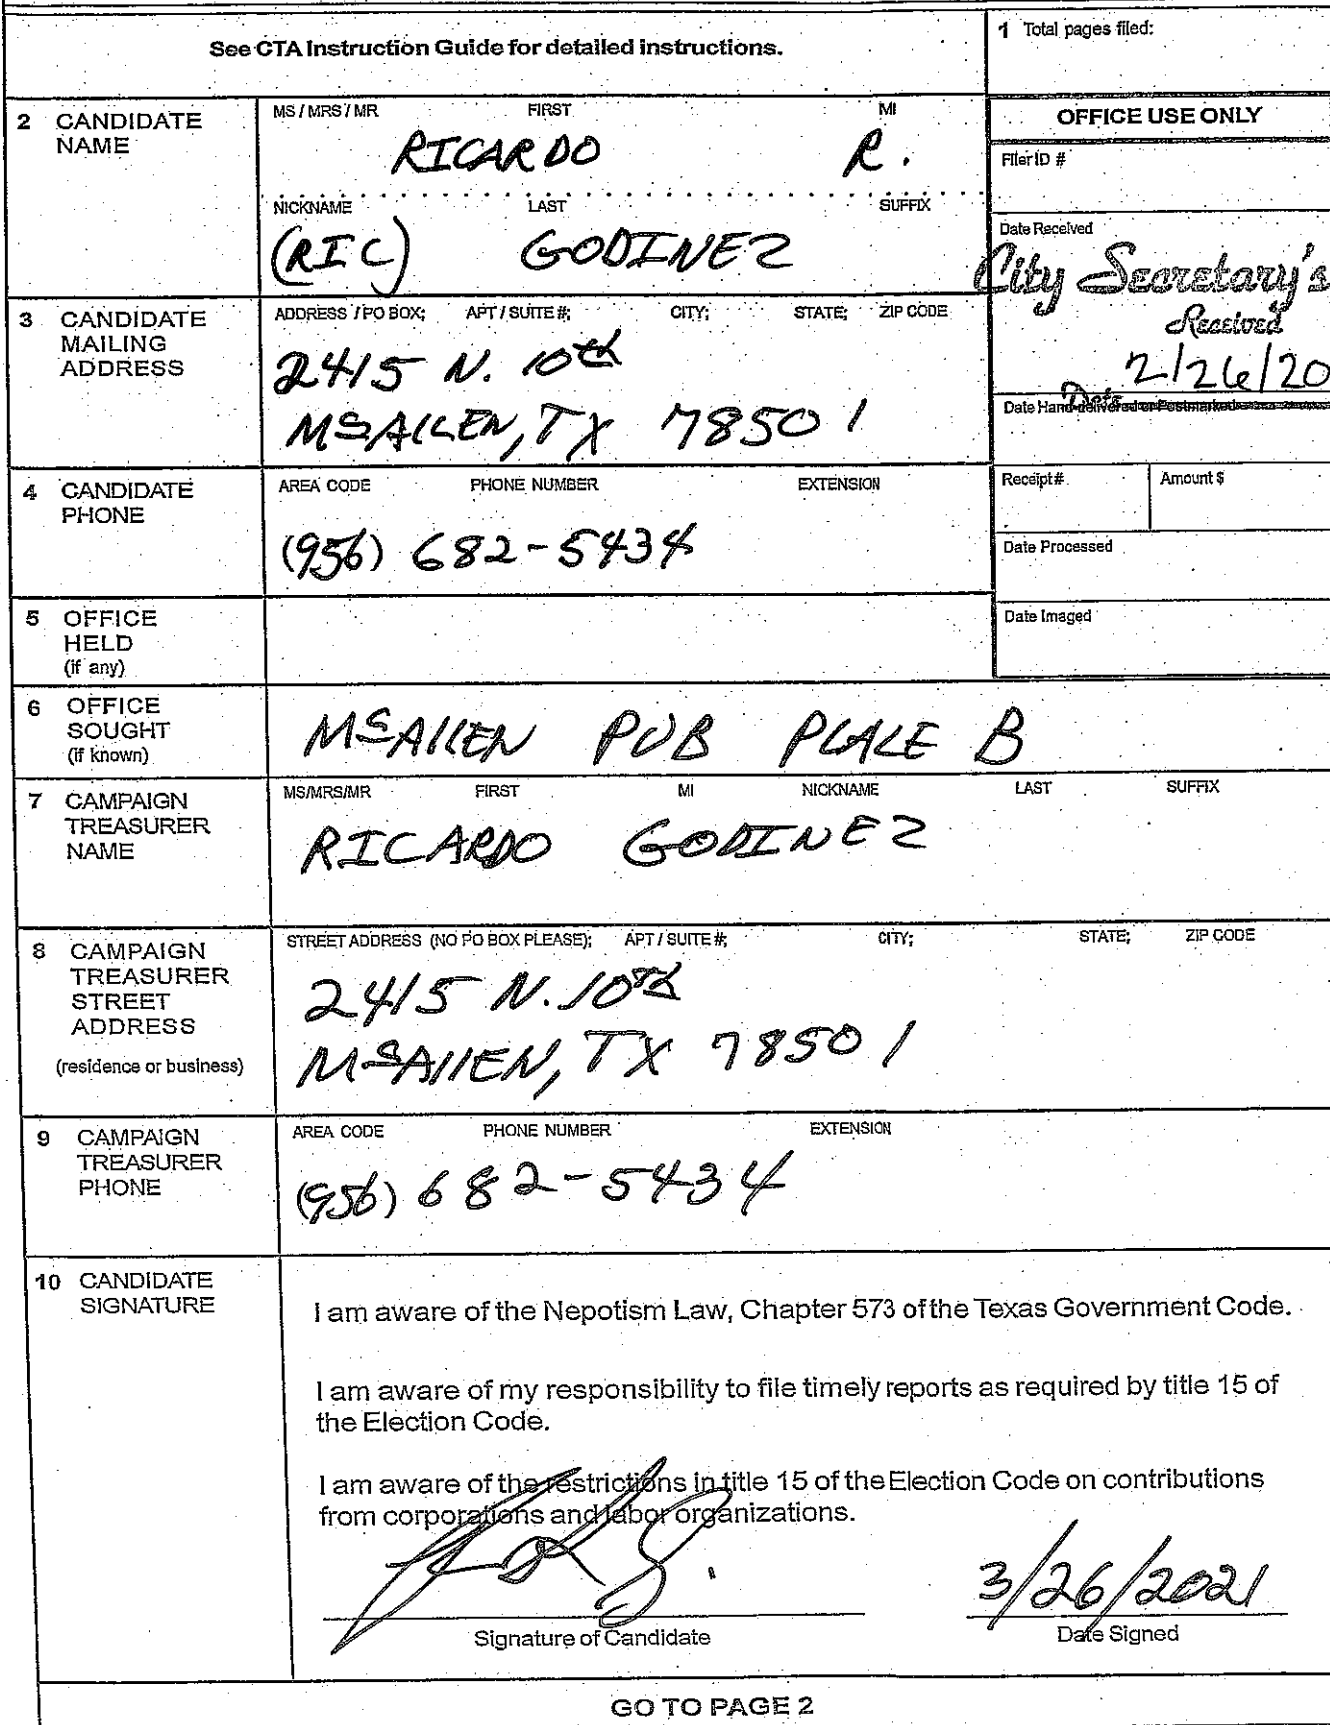 See CTA Instruction Guide for detailed instructions.
1 Total pages filed:
2 CANDIDATE NAME
MS / MRS / MR FIRST MI
RICARDO R.
NICKNAME LAST SUFFIX
(RIC) GODINEZ
OFFICE USE ONLY
Filer ID #
Date Received
City Secretary's
Received
2/26/20
Date
Date Hand-delivered or Postmarked
3 CANDIDATE MAILING ADDRESS
ADDRESS / PO BOX; APT / SUITE #; CITY; STATE; ZIP CODE
2415 N. 10th
McALLEN, TX 78501
4 CANDIDATE PHONE
AREA CODE PHONE NUMBER EXTENSION
(956) 682-5434
Receipt # Amount $
Date Processed
Date Imaged
5 OFFICE HELD (if any)
6 OFFICE SOUGHT (if known)
McALLEN PUB PLACE B
7 CAMPAIGN TREASURER NAME
MS/MRS/MR FIRST MI NICKNAME LAST SUFFIX
RICARDO GODINEZ
8 CAMPAIGN TREASURER STREET ADDRESS
(residence or business)
STREET ADDRESS (NO PO BOX PLEASE); APT / SUITE #; CITY; STATE; ZIP CODE
2415 N. 10th
McALLEN, TX 78501
9 CAMPAIGN TREASURER PHONE
AREA CODE PHONE NUMBER EXTENSION
(956) 682-5434
10 CANDIDATE SIGNATURE
I am aware of the Nepotism Law, Chapter 573 of the Texas Government Code.
I am aware of my responsibility to file timely reports as required by title 15 of
the Election Code.
I am aware of the restrictions in title 15 of the Election Code on contributions
from corporations and labor organizations.
3/26/2021
Signature of Candidate Date Signed
GO TO PAGE 2